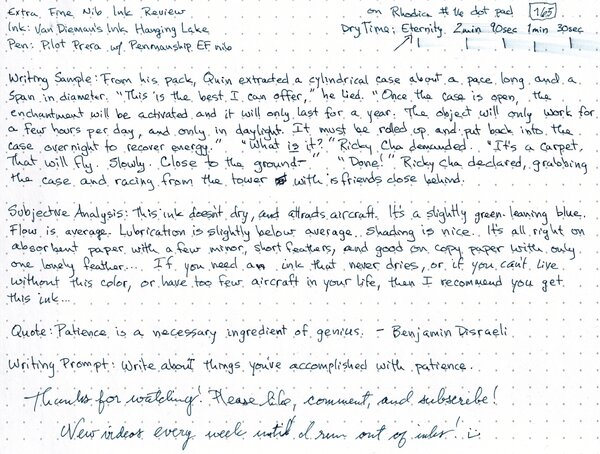 Extra Fine Nib Ink Review
on Rhodia #16 dot pad 165
Ink: Van Dieman's Ink Hanging Lake
Dry Time: Eternity 2min 90sec 1min 30sec
Pen: Pilot Prera w/ Penmanship EF nib
Writing Sample: From his pack, Quin extracted a cylindrical case about a pace long and a
span in diameter. "This is the best I can offer," he lied. "Once the case is open, the
enchantment will be activated and it will only last for a year. The object will only work for
a few hours per day, and only in daylight. It must be rolled up and put back into the
case overnight to recover energy." "What is it?" Ricky Cha demanded. "It's a carpet.
That will fly. Slowly. Close to the ground—" "Done!" Ricky Cha declared, grabbing
the case and racing from the tower with is friends close behind.
Subjective Analysis: This ink doesn't dry, and attracts aircraft. It's a slightly green leaning blue.
Flow is average. Lubrication is slightly below average. Shading is nice. It's all right on
absorbent paper with a few minor, short feathers, and good on copy paper with only
one lonely feather.... If you need an ink that never dries, or if you can't live
without this color, or have too few aircraft in your life, then I recommend you get
this ink...
Quote: Patience is a necessary ingredient of genius. - Benjamin Disraeli
Writing Prompt: Write about things you've accomplished with patience.
Thanks for watching! Please like, comment, and subscribe!
New videos every week until I run out of inks! :)